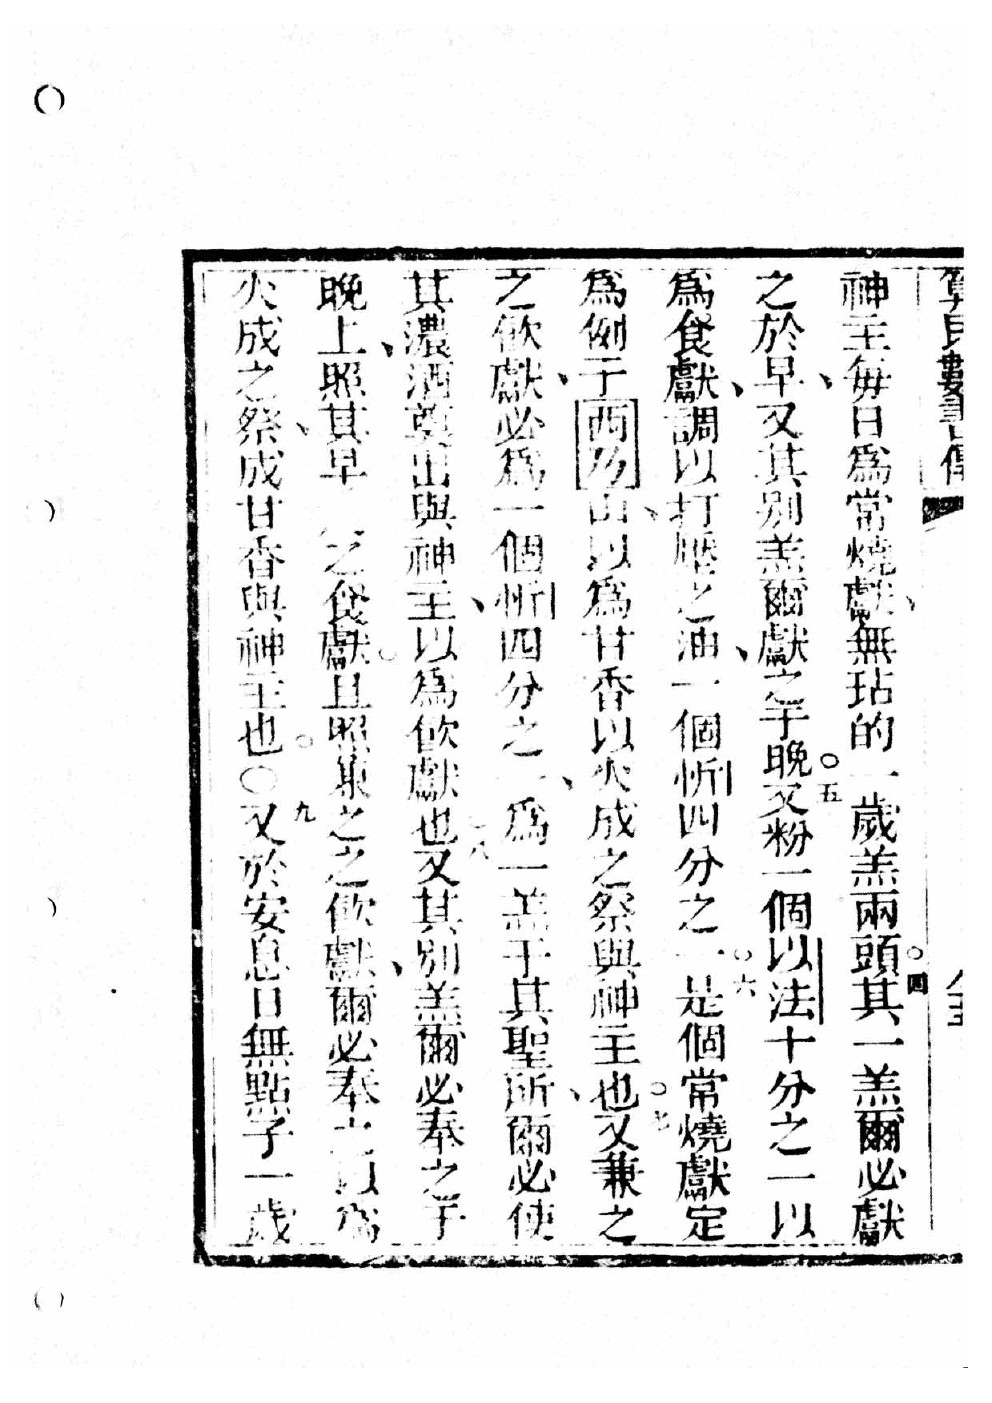 算民數書傳
神主每日爲常燒獻無玷的一歲羔兩頭○四其一羔爾必獻
之於早又其別羔爾獻之于晚○五又粉一個以法十分之一以
爲食獻調以打壓之油一個忻四分之一○六是個常燒獻定
爲例于西乃山以爲甘香以火成之祭與神主也○七又兼之
之飲獻必爲一個忻四分之一爲一羔于其聖所爾必使
其濃酒奠出與神主以爲飲獻也○八又其別羔爾必奉之于
晚上照其早 之食獻○且照兼之之飲獻爾必奉之以爲
火成之祭成甘香與神主也○〇九又於安息日無點子一歲